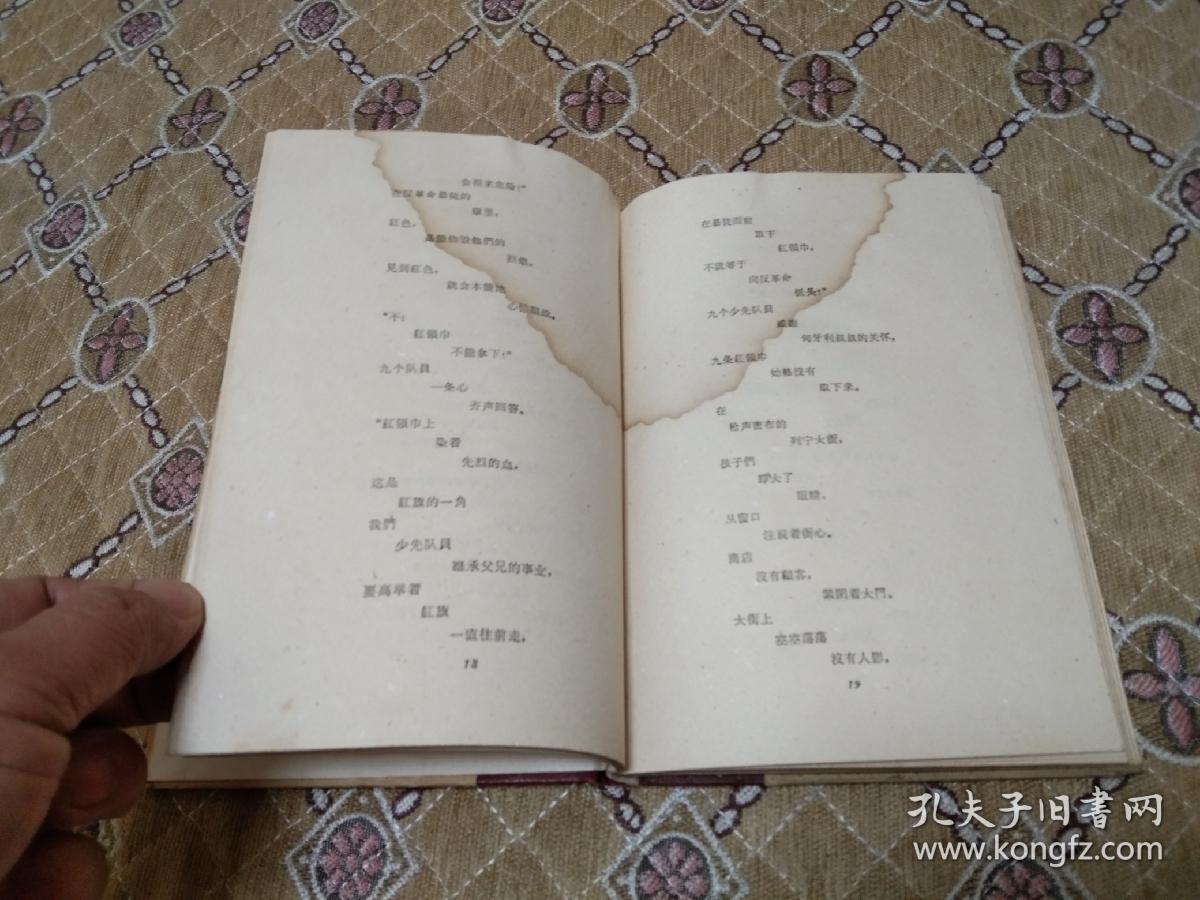 会招来危险!"
在反革命暴徒的
眼里,
紅色,
是
他們的
烈焰,
見到紅色,
就会本能地
心惊
"不!
紅領巾
不能拿下!"
九个队員
一条心
齐声回答。
"紅領巾上
染着
先烈的血,
這是
紅旗的一角
我們
少先队員
継承父兄的事业,
要高举着
紅旗
一直往前走,
18
在暴徒面前
取下
紅領巾,
不就等于
向反革命
低头!"
九个少先队員
感謝
匈牙利叔叔的关怀,
九条紅領巾
始終沒有
取下来。
在
枪声密布的
列宁大街,
孩子們
睜大了
眼睛,
从窗口
注視着街心。
商店
沒有顧客,
紧閉着大門。
大街上
空空蕩蕩
沒有人影。
19
孔夫子旧書网
www.kongfz.com